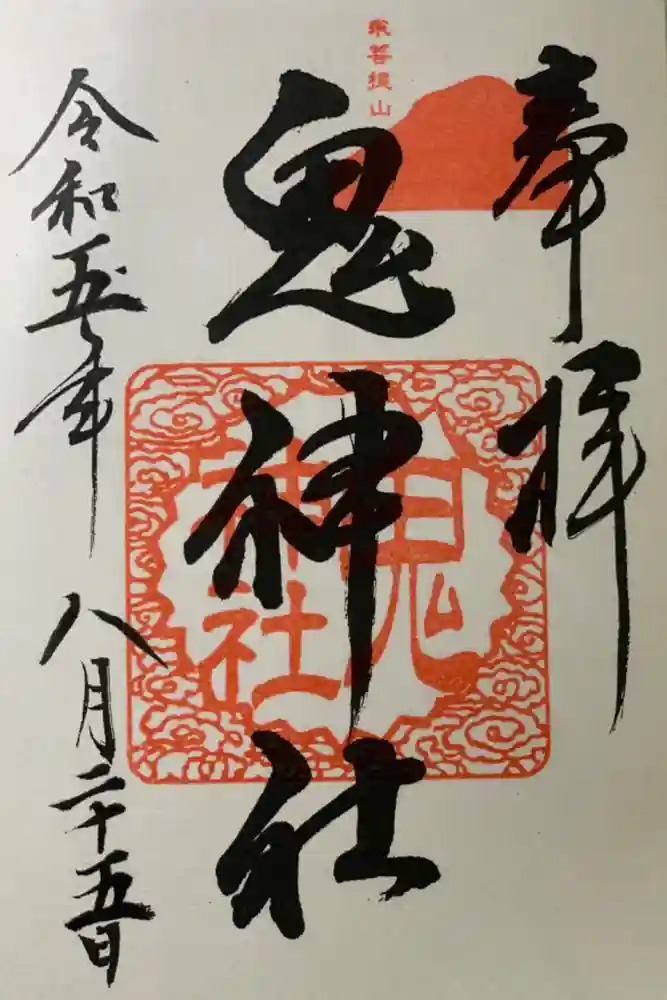 奉拝
求菩提山
鬼神社
鬼
神社
令和五年
八月二十五日